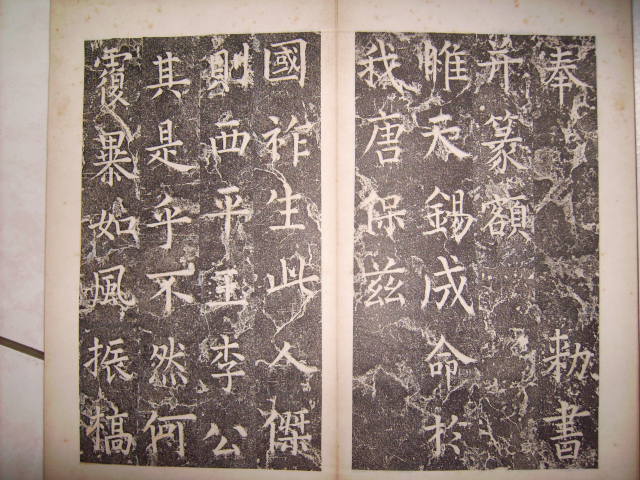 奉 勑書
并篆額
睢天錫成命於
我唐保茲
國祚生此人傑
則西平王李公
其是乎不然何
覆暴如風振槁